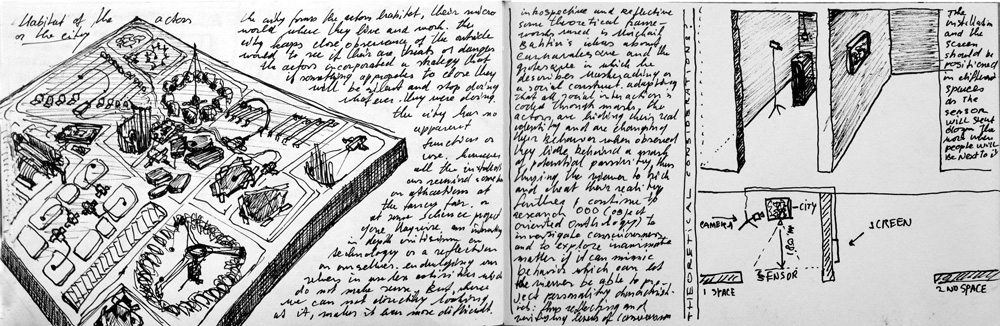 Habitat of the actors
or the city
the city forms the actors habitat, their micro
world where they live and work. the
city keeps close observancy of the outside
world to see if there are threats or dangers
the actors incorporated a strategy that
if something approaches to close they
will be silent and stop doing
whatever they were doing.
the city has no
apparent
function or
use, however
all the
remind
or attractions at
the fancy fair. or
at some science project
gone haywire. an
in depth on
technology or a reflection
on ourselves.
in useless activities which
do not make sense. But, since
we can not directly looking
at it, makes it even more difficult.
introspective and reflective
some theoretical frame-
works used is Michail
Bakhtin's ideas about
Carnavalesque and the
grotesque in which he
describes masquerading as
a social construct. adapting
that all social interaction is
coded through masks, the
actors are hiding their real
identity and are changing
their behavior when observed
they hide behind a mask
of potential passivity, thus
the viewer to
and cheat their reality
further I continue to
research OOO (object
oriented ontology) to
investigate consciousness
and to explore inanimate
matter if it can mimic
behavior which can let
the viewer be able to pro-
ject personality
thus reflecting and
levels of conversion
THEORETICAL CONSIDERATIONS
The
installation
and the
screen
should be
positioned
in different
spaces
as the
sensor
will shut
down the
work when
people will
be next to it
CAMERA
CITY
SCREEN
180 m
SENSOR
1 SPACE
2ND SPACE